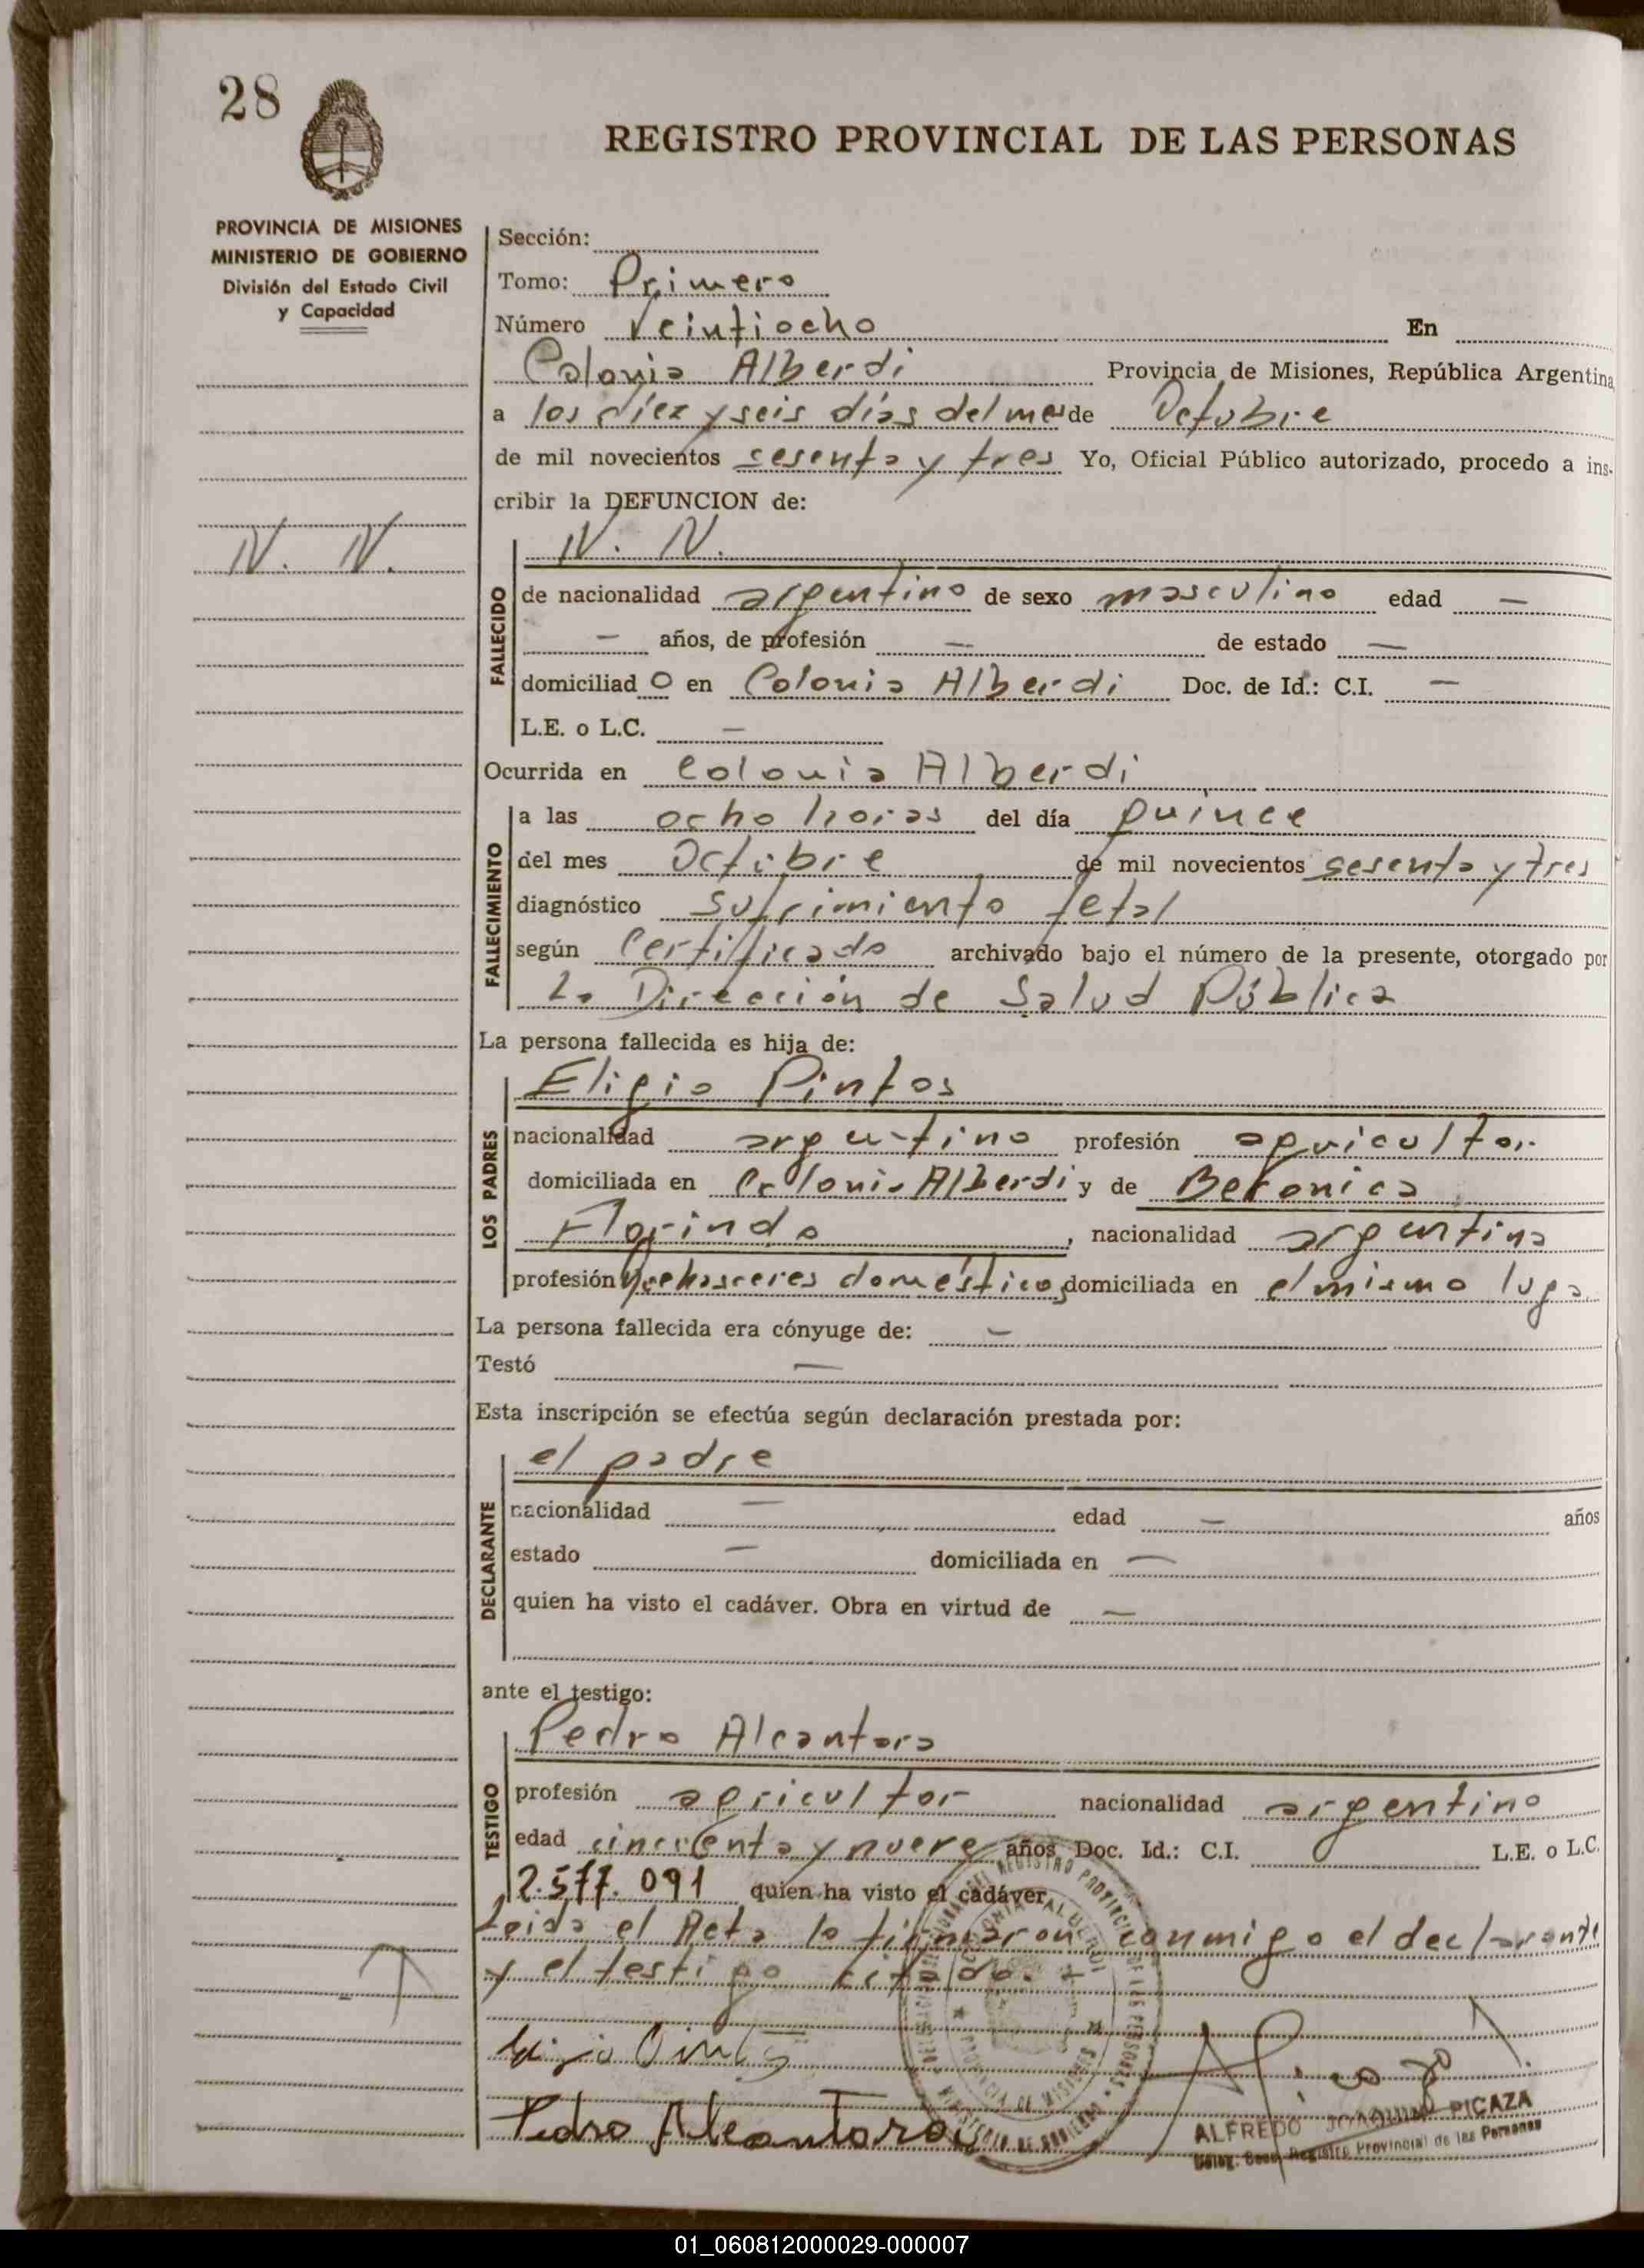 28
REGISTRO PROVINCIAL DE LAS PERSONAS
PROVINCIA DE MISIONES
MINISTERIO DE GOBIERNO
División del Estado Civil
y Capacidad
Sección:
Tomo: Primero
Número Veintiocho En
Colonia Alberdi Provincia de Misiones, República Argentina
a los diez y seis días del mes de Octubre
de mil novecientos sesenta y tres Yo, Oficial Público autorizado, procedo a ins-
cribir la DEFUNCION de:
N. N.
N. N.
FALLECIDO
de nacionalidad argentino de sexo masculino edad —
— años, de profesión — de estado —
domiciliad o en Colonia Alberdi Doc. de Id.: C.I. —
L.E. o L.C. —
Ocurrida en Colonia Alberdi
FALLECIMIENTO
a las ocho horas del día quince
del mes Octubre de mil novecientos sesenta y tres
diagnóstico Sufrimiento fetal
según Certificado archivado bajo el número de la presente, otorgado por
La Dirección de Salud Pública
La persona fallecida es hija de:
LOS PADRES
Eligio Pintos
nacionalidad argentino profesión agricultor
domiciliada en Colonia Alberdi y de Beronica
Florindo, nacionalidad argentina
profesión quehaceres domésticos domiciliada en el mismo luga
La persona fallecida era cónyuge de: —
Testó —
Esta inscripción se efectúa según declaración prestada por:
DECLARANTE
el padre
nacionalidad — edad — años
estado — domiciliada en —
quien ha visto el cadáver. Obra en virtud de —
ante el testigo:
TESTIGO
Pedro Alcantara
profesión agricultor nacionalidad argentino
edad cincuenta y nueve años Doc. Id.: C.I. L.E. o L.C.
2.577.091 quien ha visto el cadáver.
Leida el Acta lo firmaron conmigo el declarante
y el testigo citado.
Pedro Alcantara
ALFREDO JOAQUIN PICAZA
Deleg. Registro Provincial de las Personas
01_060812000029-000007